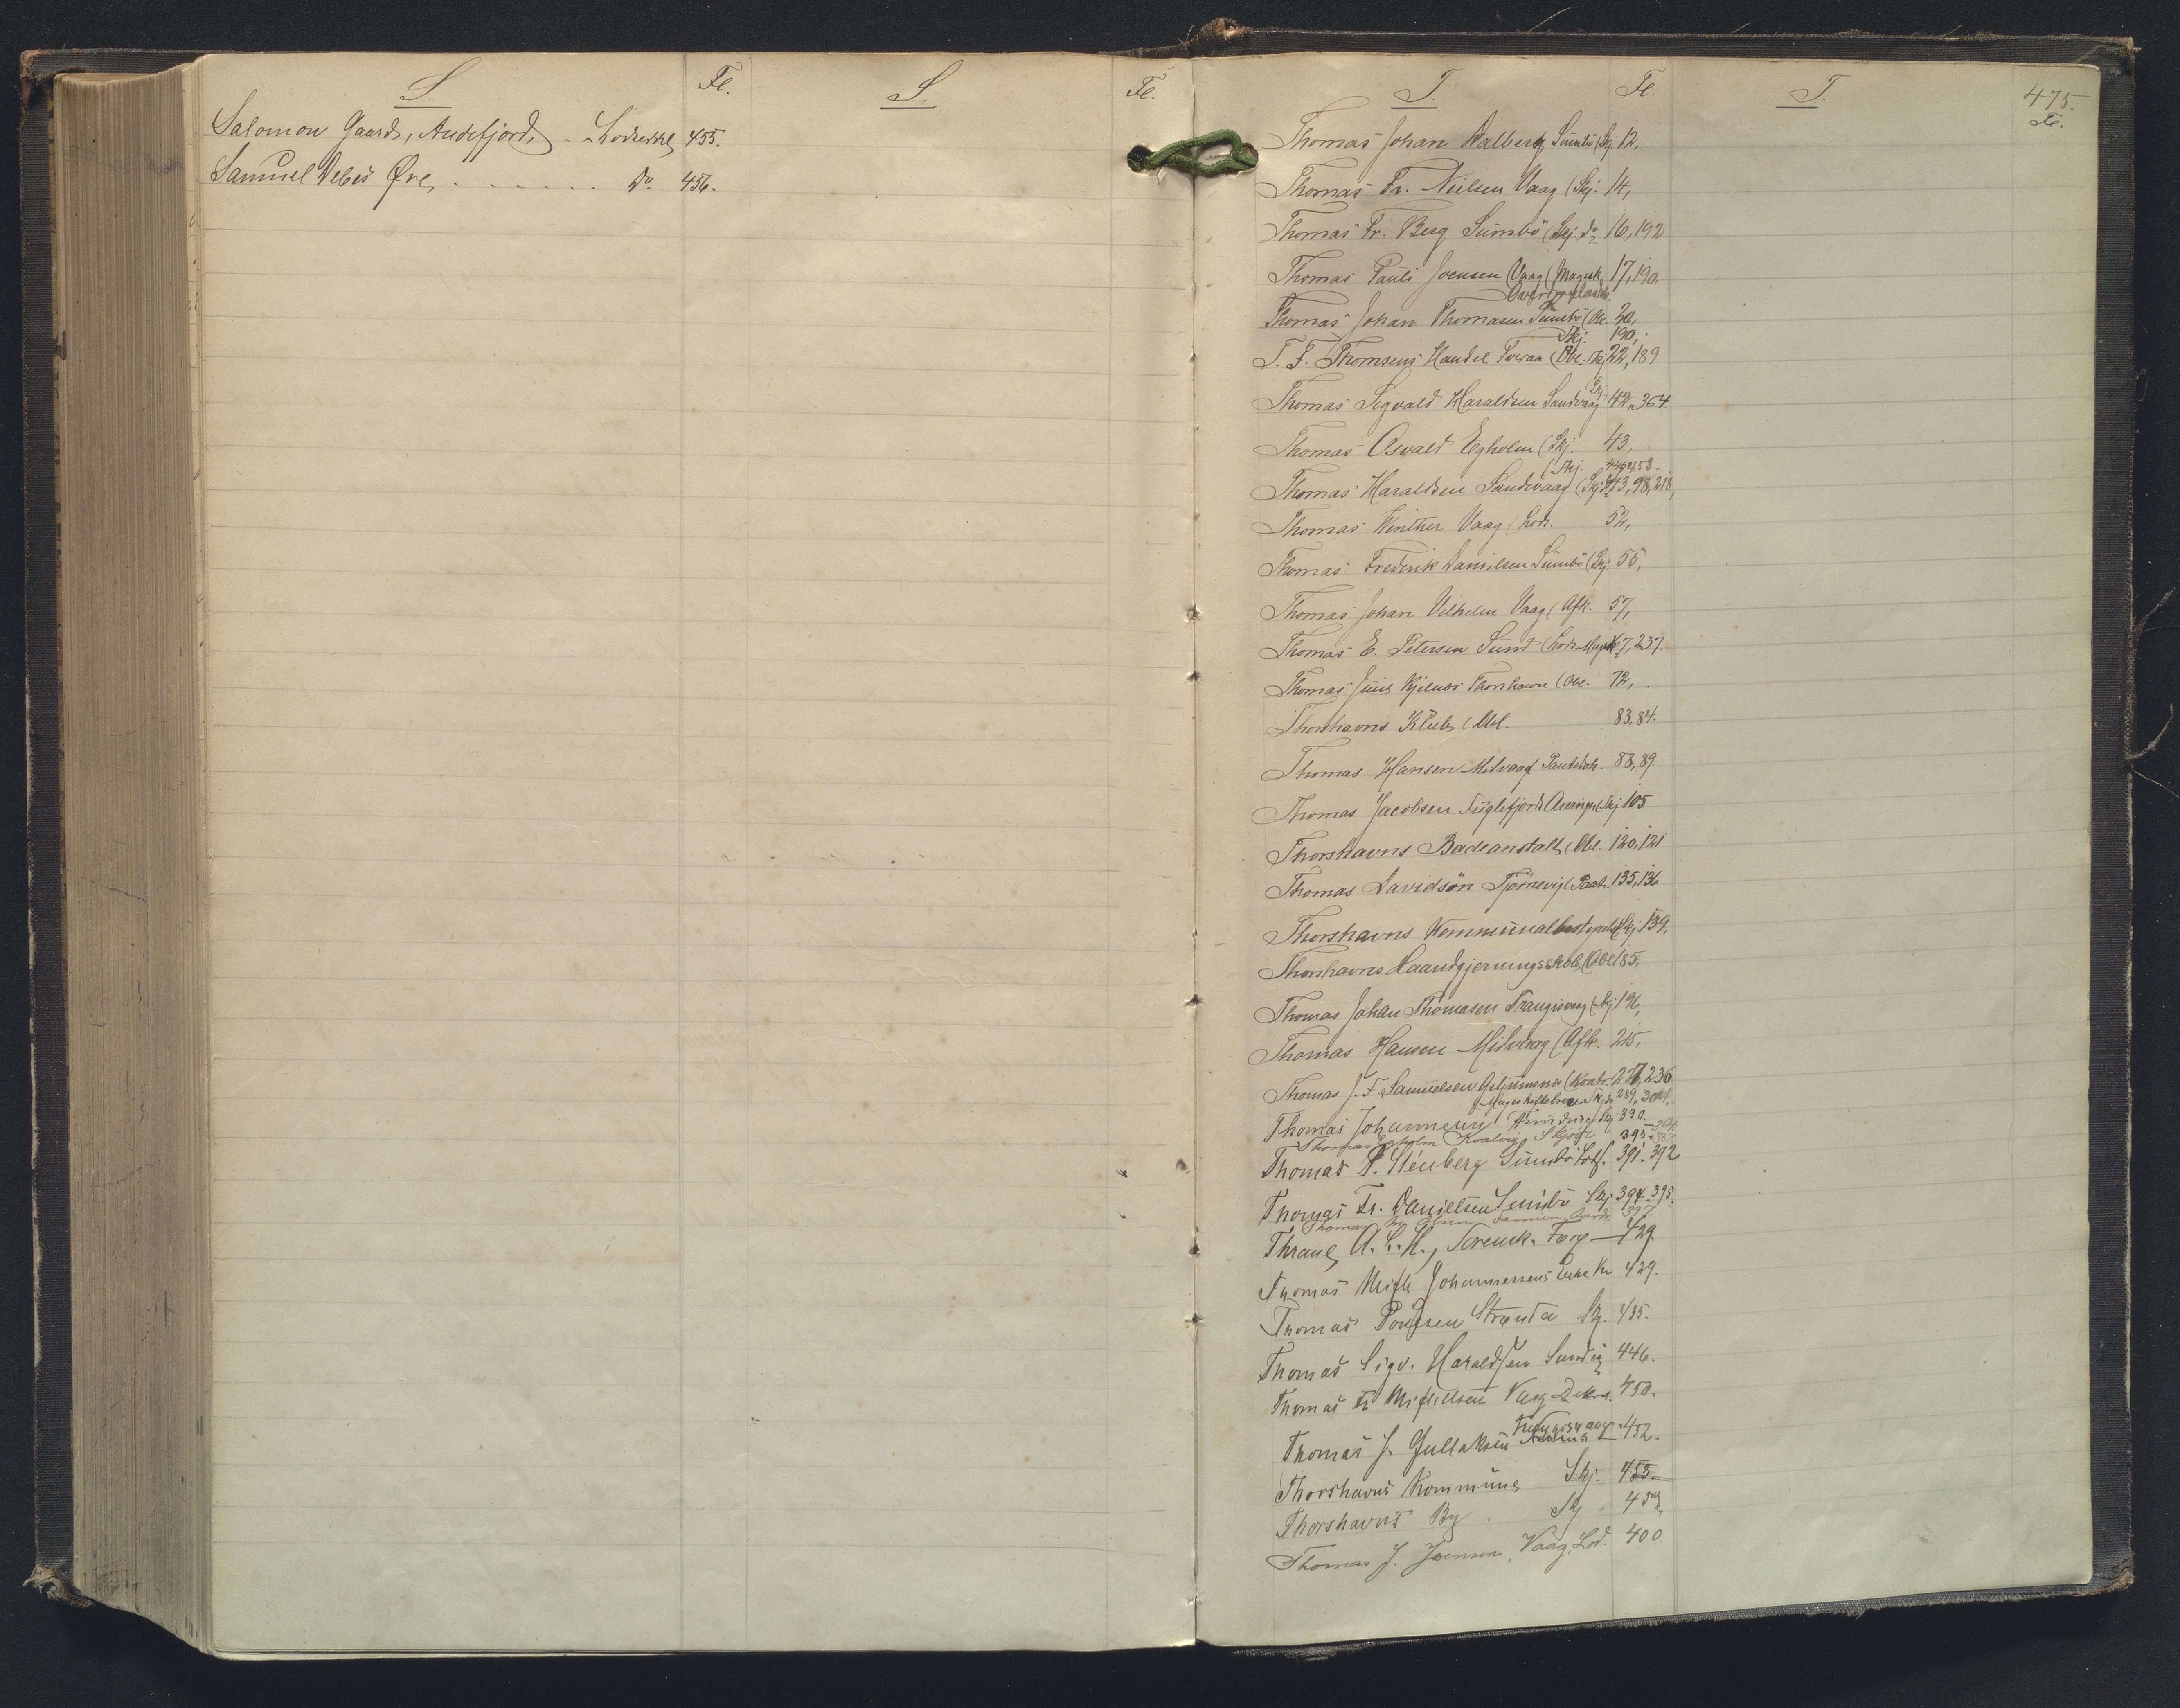 S. Fl. S. Fl.
Salomon Gaard, Andefjord, 455.
Samuel Debes Øre, . . . . . . . Do 456.
T. Fl. T. 475.
Fl.
Thomas Johan Dalberg Sumbö (Skj. 12,
Thomas Fr. Nielsen Vaag (Skj. 14,
Thomas Fr. Berg Sumbö (Skj. do 16, 192
Thomas Pauli Joensen Vaag (Magesk. 17, 190,
Thomas Johan Thomasen Sumbö (Obl. 20,
Skj. 190,
T. F. Thomsens Handel Tveraa (Obl. 22, 189
Skj
Thomas Sigvald Haraldsen Sandvaag 42, 364.
Thomas Osvald Egholm (Skj. 43,
(Skj.
Thomas Haraldsen Sandvaag (Skj. 43, 98, 218,
Thomas Winther Vaag (Lods. 52,
Thomas Frederik Danielsen Sumbö (Skj. 55,
Thomas Johan Vilhelm Vaag (Afk. 57,
Thomas E. Petersen Sund (Lods. Magesk. 67, 237.
Thomas Juul Kjelnæs Thorshavn (Obl. 72,
Thorshavns Klub, (Obl. 83, 84.
Thomas Hansen Midvaag Panteobl. 88, 89.
Thomas Jacobsen Fuglefjord (Skj 105
Thorshavns Badeanstalt, (Obl. 120, 121
Thomas Davidsön Tjörnevig 135, 136
Thorshavns Kommunalbestyrelse (Skj. 139,
Thorshavns Haandgjerningsskole (Obl 185,
Thomas Johan Thomasen Trangisvaag (Skj 196,
Thomas Hansen Midvaag (Afk. 215,
Thomas J. F. Samuelsen (Kontr. 227, 236
Mageskiftebrev 289, 304.
Thomas Johannesen Skj 390.
Thomas Egholm Kvalvig Skjøde 393
Thomas P. Stenberg Sumbö 391. 392
Thomas Fr. Danielsen Sumbö Skj 394. 395.
Thomas 397
Thrane, A. C. H., Sorensk. Færø — 429.
Thomas Mich Johannessens Enke 429.
Thomas Poulsen Strænda Skj. 435.
Thomas Sigv. Haraldsen Sandvig 446.
Thomas Fr Michelsen Vaag 450.
Trangisvaag
Thomas J. Gullaksen 452.
Thorshavns Kommune Skj. 453.
Thorshavns By . Skj - 453,
Thomas J. Joensen, Vaag, Lod. 400